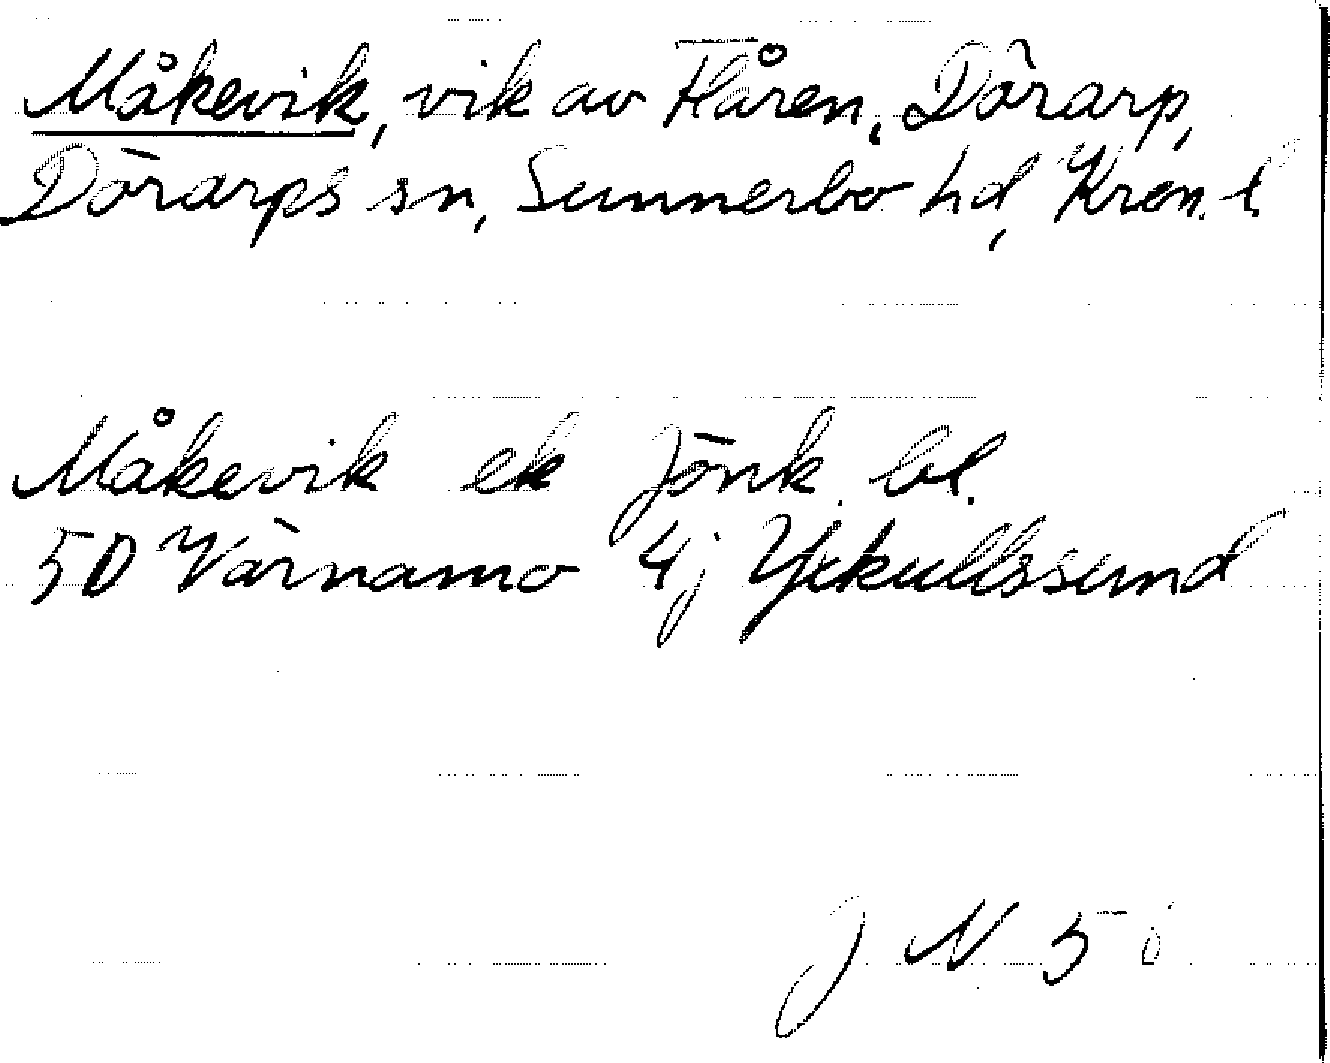 Måkevik, vik av Flåren, Dörarp,
Dörarps sn, Sunnerbo hd, Kron. l.
Måkevik ek Jönk. bl.
5D Värnamo 4j Yxkullssund
J N 5